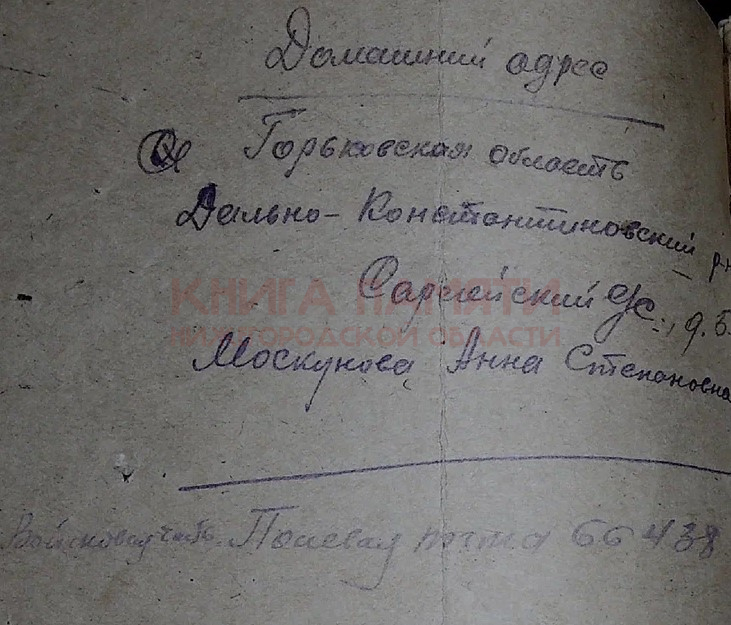 Домашний адрес
Горьковская область
Дально-Константиновский р-н
Сарлейский с/с., д. Б
КНИГА ПАМЯТИ
НИЖЕГОРОДСКОЙ ОБЛАСТИ
Москунова Анна Степановна
Войсковая часть Полевая почта 66438